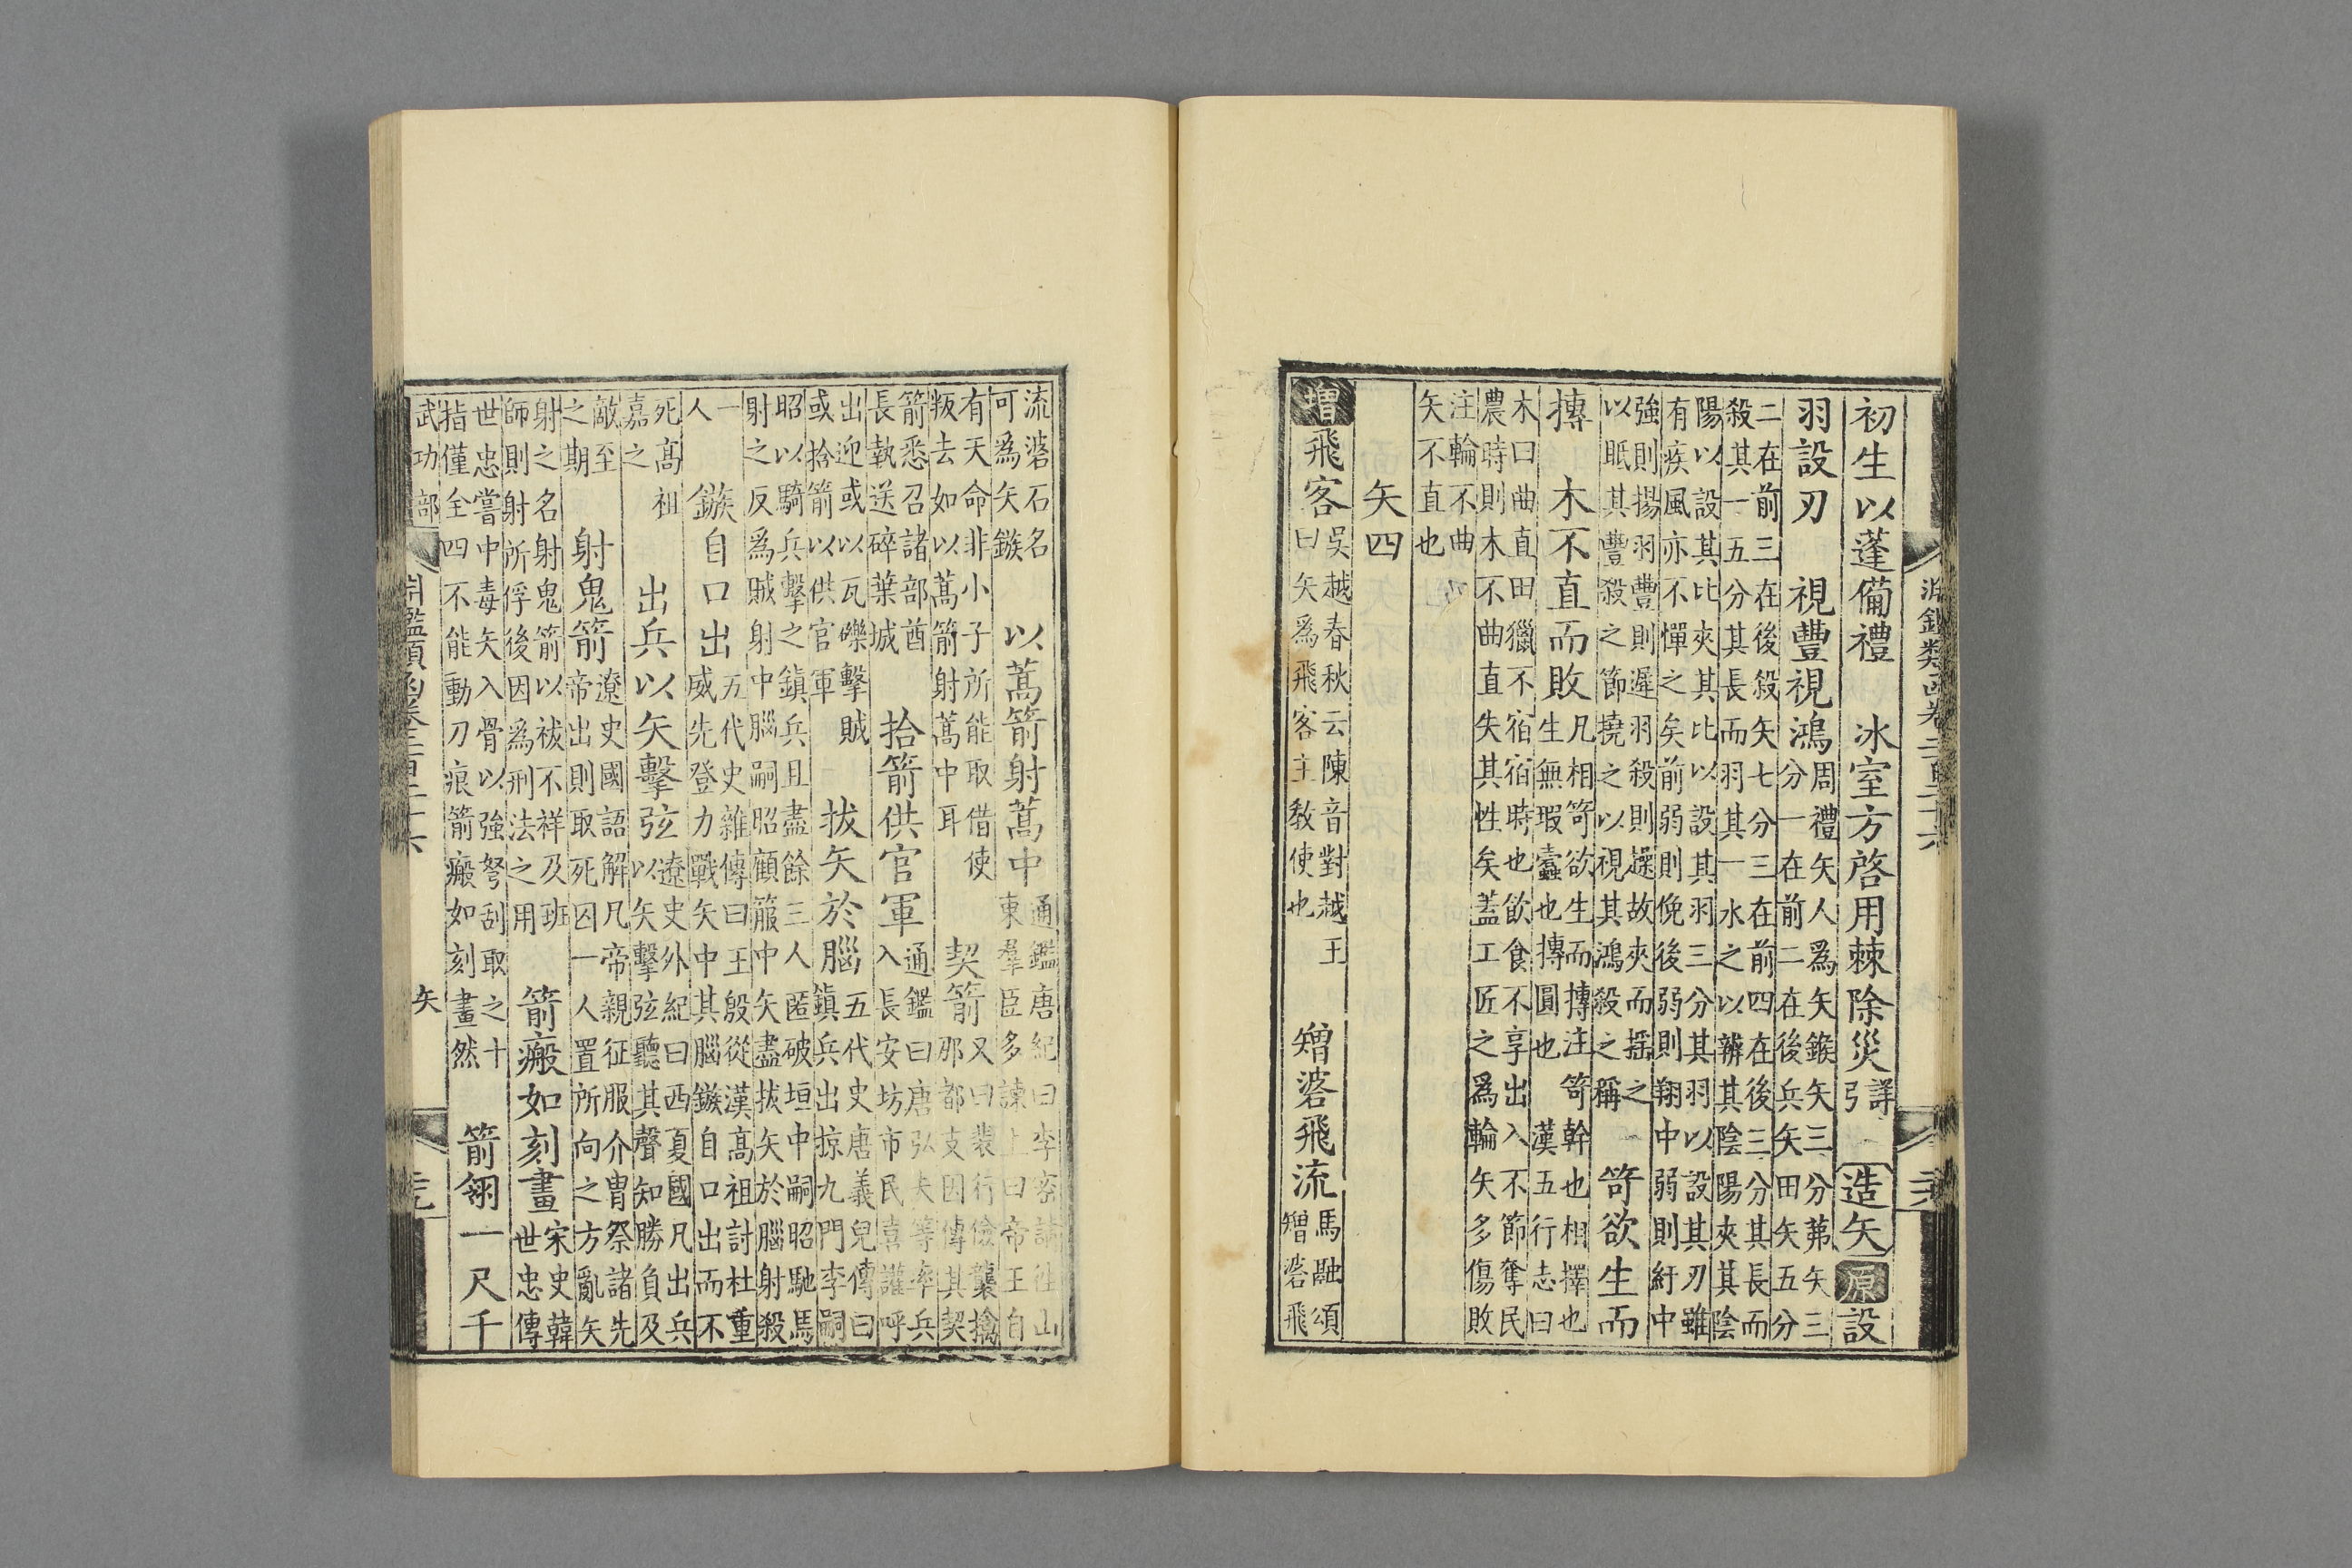 淵鑑類函卷二百二十六
初生以蓬備禮　冰室方啓用棘除災詳引　造矢　原設
羽設刃　視豐視鴻
周禮矢人為矢鍭矢三分茀矢三
分一在前二在後兵矢田矢五分
二在前三在後殺矢七分三在前四在後三分其長而
殺其一五分其長而羽其一水之以辨其陰陽夾其陰
陽以設其比夾其比以設其羽三分其羽以設其刃雖
有疾風亦不憚之矣前弱則俛後弱則翔中弱則紆中
強則揚羽豐則遲羽殺則趮故夾而揺之
以眡其豐殺之節撓之以視其鴻殺之稱
笴欲生而
摶　木不直而敗
凡相笴欲生而摶注　笴幹也相擇也
生無瑕蠹也摶圓也　漢五行志曰
木曰曲直田獵不宿宿時也飲食不享出入不節奪民
農時則木不曲直失其性矣蓋工匠之為輪矢多傷敗
注輪不曲
矢不直也
矢四
增飛客
吳越春秋云陳音對越王
曰矢為飛客主教使也
矰碆飛流
馬融頌
矰碆飛
流碆石名
可為矢鏃
以蒿箭射蒿中
通鑑唐紀曰李密徃山
東羣臣多諫上曰帝王自
有天命非小子所能取借使
叛去如以蒿箭射蒿中耳
契箭
又曰裴行儉襲擒
那都支因傳其契
箭悉召諸部酋
長執送碎葉城
拾箭供官軍
通鑑曰唐弘夫等率兵
入長安坊市民喜讙呼
出迎或以瓦礫擊賊
或拾箭以供官軍
拔矢於腦
五代史唐義兒傳曰
鎮兵出掠九門李嗣
昭以騎兵擊之鎮兵且盡餘三人匿破垣中嗣昭馳馬
射之反為賊射中腦嗣昭顧箙中矢盡拔矢於腦射殺
一
人
鏃自口出
五代史雜傳曰王殷從漢高祖討杜重
威先登力戰矢中其腦鏃自口出而不
死高祖
嘉之
出兵以矢擊弦
遼史外紀曰西夏國凡出兵
以矢擊弦聽其聲知勝負及
敵至
之期
射鬼箭
遼史國語解凡帝親征服介冑祭諸先
帝出則取死囚一人置所向之方亂矢
射之名射鬼箭以祓不祥及班
師則射所俘後因為刑法之用
箭瘢如刻畫
宋史韓
世忠傳
世忠嘗中毒矢入骨以強弩刮取之十
指僅全四不能動刀痕箭瘢如刻畫然
箭翎一尺千
武功部　淵鑑類函卷二百二十六　矢